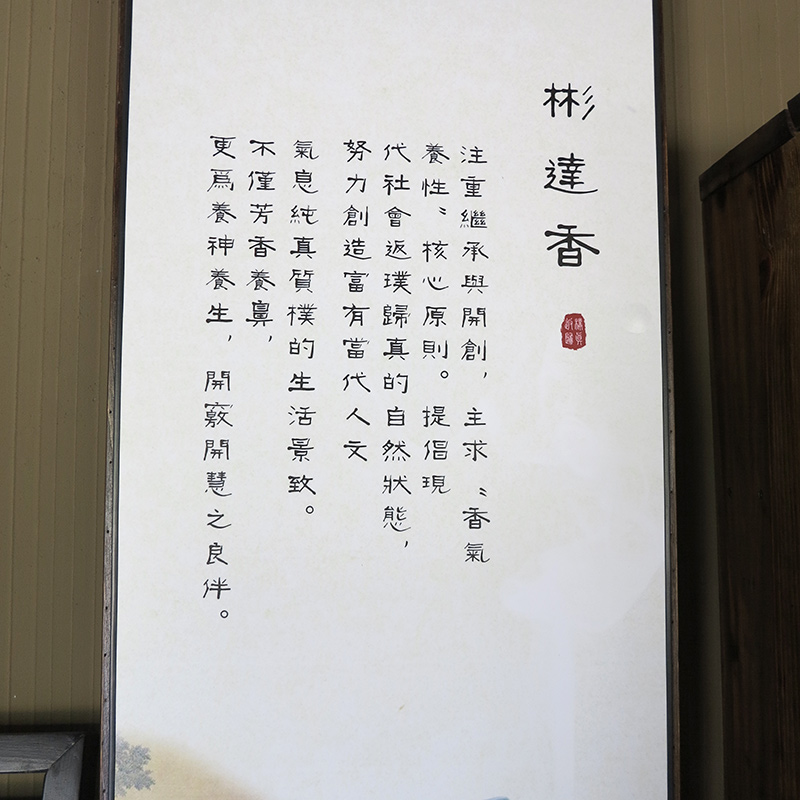 彬達香
注重繼承與開創，主求〝香氣
養性〞核心原則。提倡現
代社會返璞歸真的自然狀態，
努力創造富有當代人文
氣息純真質樸的生活景致。
不僅芳香養鼻，
更爲養神養生，開竅開慧之良伴。